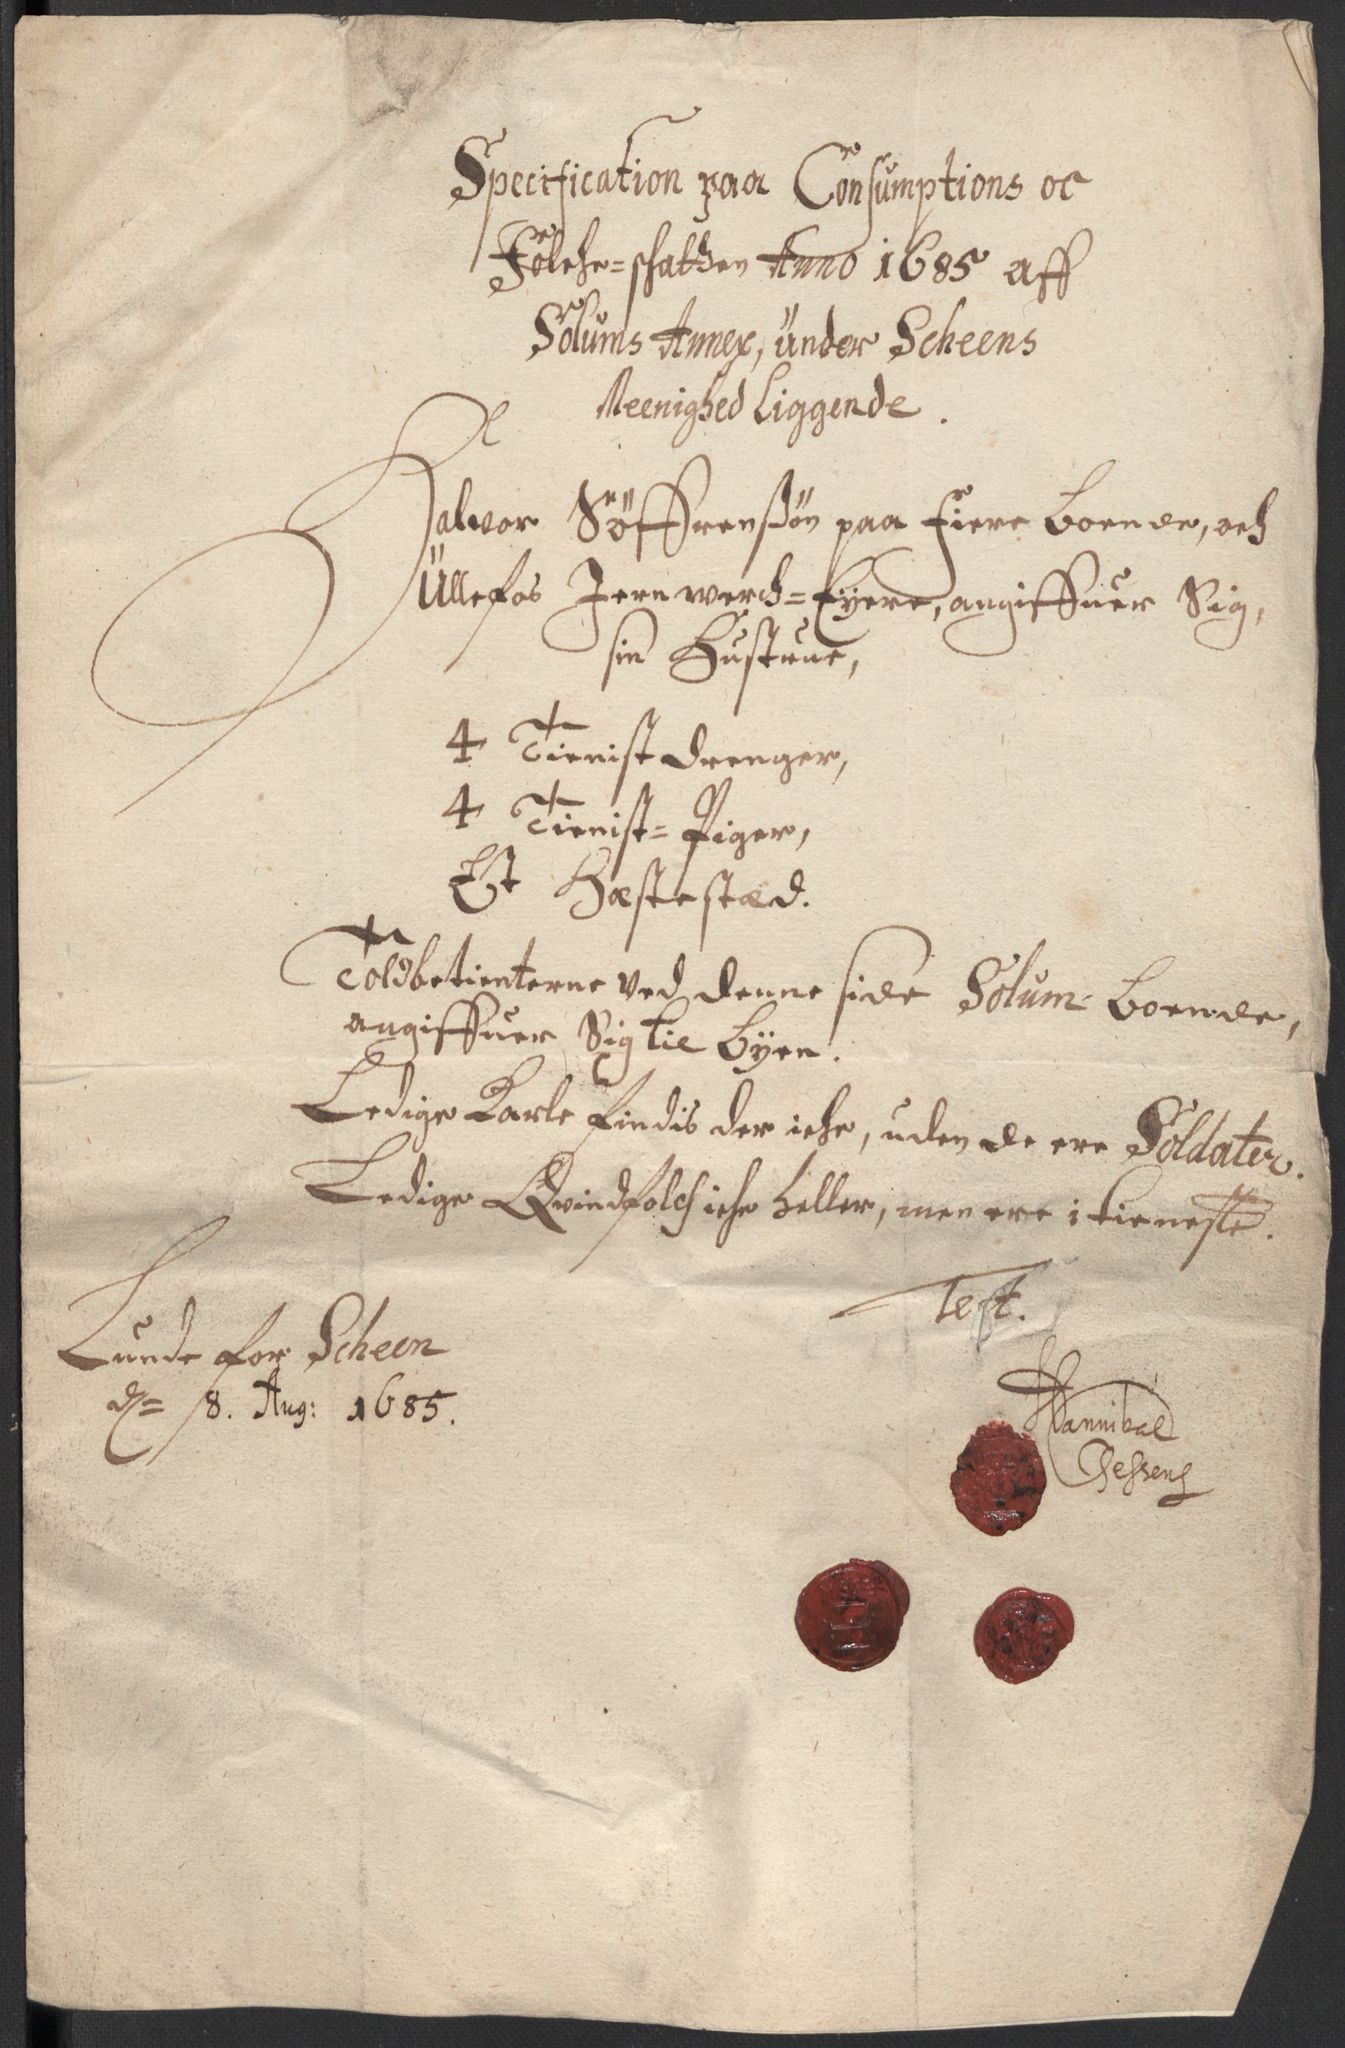 Specification paa Consumptions oc
Folche=schatten Anno 1685 aff
Solums Annex, under Scheens
Meenighed Liggende.
Halvor Söffrensßön paa Fiere boende, och
Ullefos Jernwerch=Eyere, angiffuer Sig,
sin Hustrue,
4 Tienist drenger,
4 Tienist=Piger,
Et Hæstestæd.
Toldbetienterne ved denne side Solum boende,
angiffuer Sig til Byen.
Ledige Karle findis der iche, uden de ere Soldater.
Ledige Qvindfolch iche heller, men ere i tieneste.
Test.
Lunde for Scheen
d= 8. Aug: 1685.
Hannibal